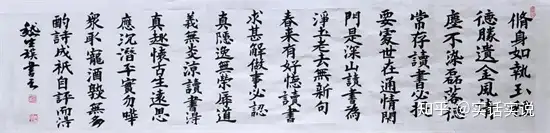 脩身如執玉
德勝遺金風
處不深磊落
常存讀書必
要處世在通情閉
門是深山讀書為
淨土老去無新句
春來有好讀書
求甚解做事必認
真隱逸無榮辱道
義無炎涼讀書得
真趣懷古生遠思
應沉潛平實勿嘩
眾取寵酒無
酌詩成祇自評
知乎 @实话实说